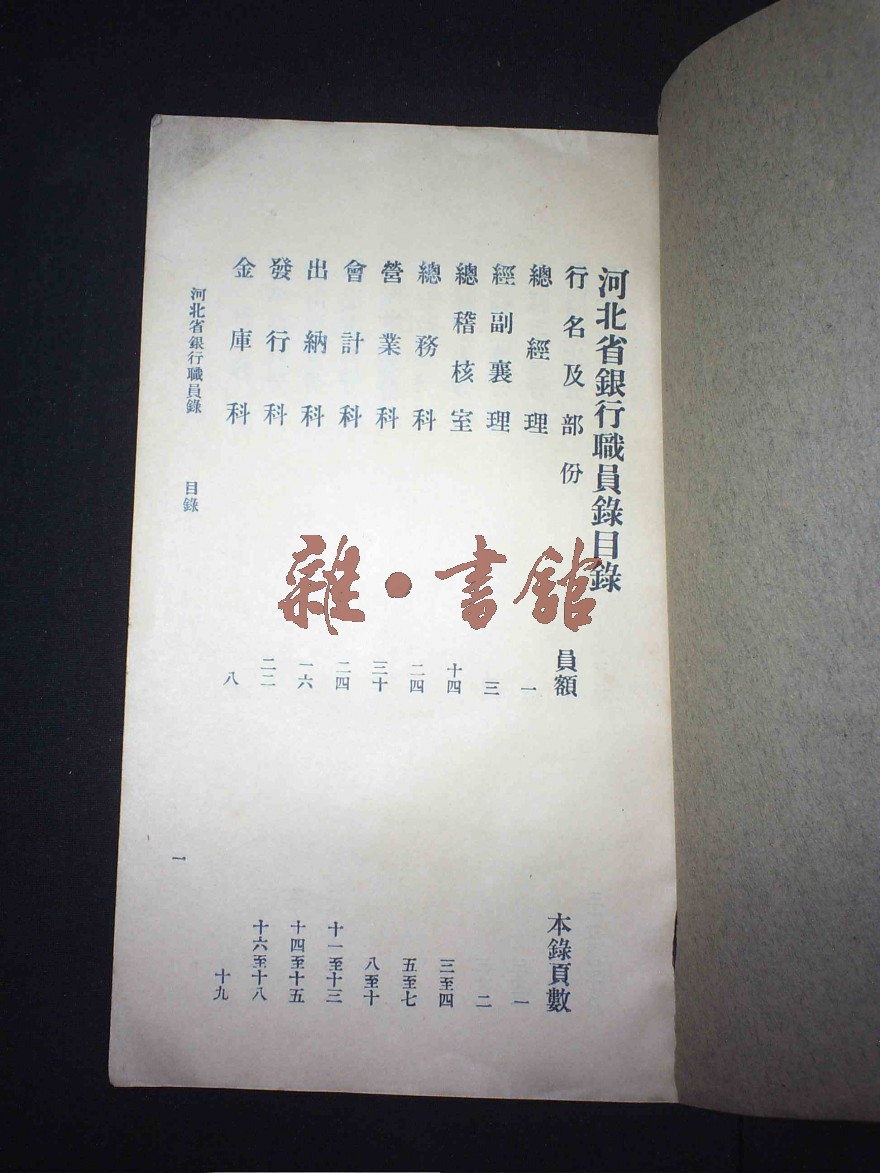 河北省銀行職員錄目錄
行名及部份 員額 本錄頁數
總經理 一 一
經副襄理 三 二
總稽核室 十四 三至四
總務科 二四 五至七
營業科 三十 八至十
會計科 二四 十一至十三
出納科 一六 十四至十五
發行科 二二 十六至十八
金庫科 八 十九
河北省銀行職員錄 目錄 一
雜·書館